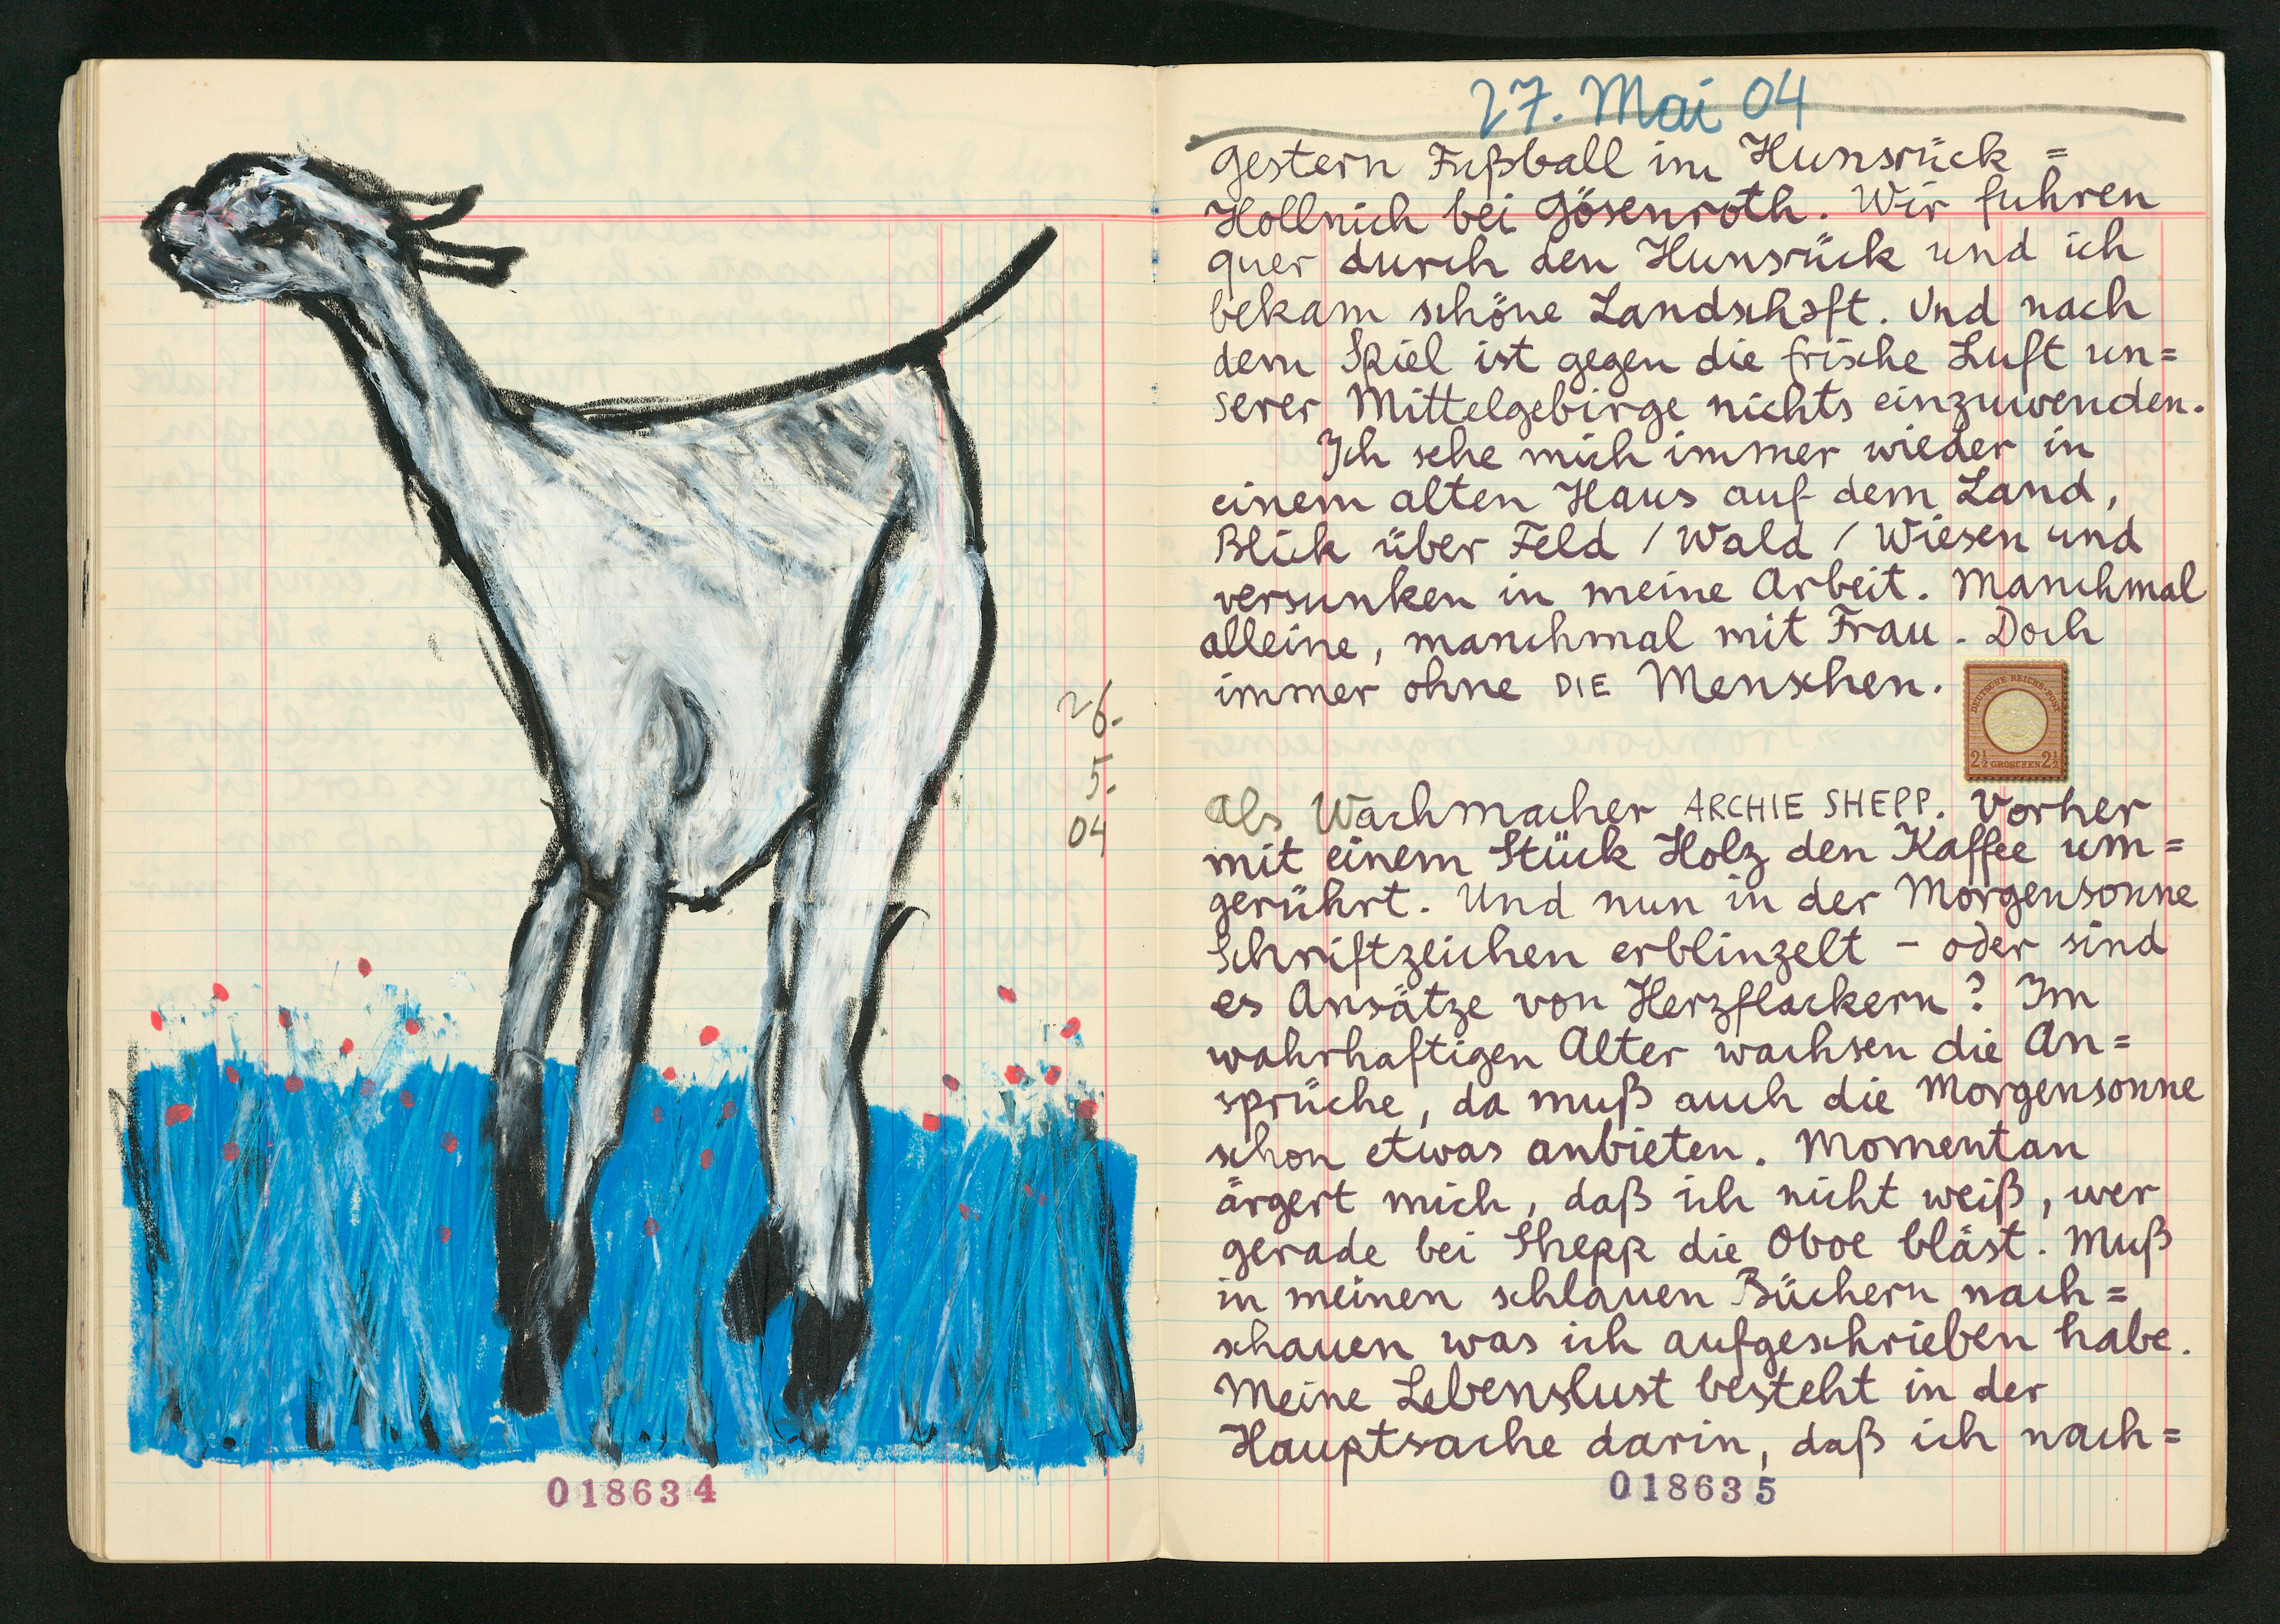 26.
5.
04
018634
27. Mai 04
Gestern Fußball im Hunsrück =
Hollnich bei Gösenroth. Wir fuhren
quer durch den Hunsrück und ich
bekam schöne Landschaft. Und nach
dem Spiel ist gegen die frische Luft un=
serer Mittelgebirge nichts einzuwenden.
Ich sehe mich immer wieder in
einem alten Haus auf dem Land,
Blick über Feld / Wald / Wiesen und
versunken in meine Arbeit. Manchmal
alleine, manchmal mit Frau. Doch
immer ohne DIE Menschen.
DEUTSCHE REICHS-POST
2½ GROSCHEN 2½
Als Wachmacher ARCHIE SHEPP. Vorher
mit einem Stück Holz den Kaffee um=
gerührt. Und nun in der Morgensonne
Schriftzeichen erblinzelt – oder sind
es Ansätze von Herzflackern? Im
wahrhaftigen Alter wachsen die An=
sprüche, da muß auch die Morgensonne
schon etwas anbieten. Momentan
ärgert mich, daß ich nicht weiß, wer
gerade bei Shepp die Oboe bläst. Muß
in meinen schlauen Büchern nach=
schauen was ich aufgeschrieben habe.
Meine Lebenslust besteht in der
Hauptsache darin, daß ich nach=
018635